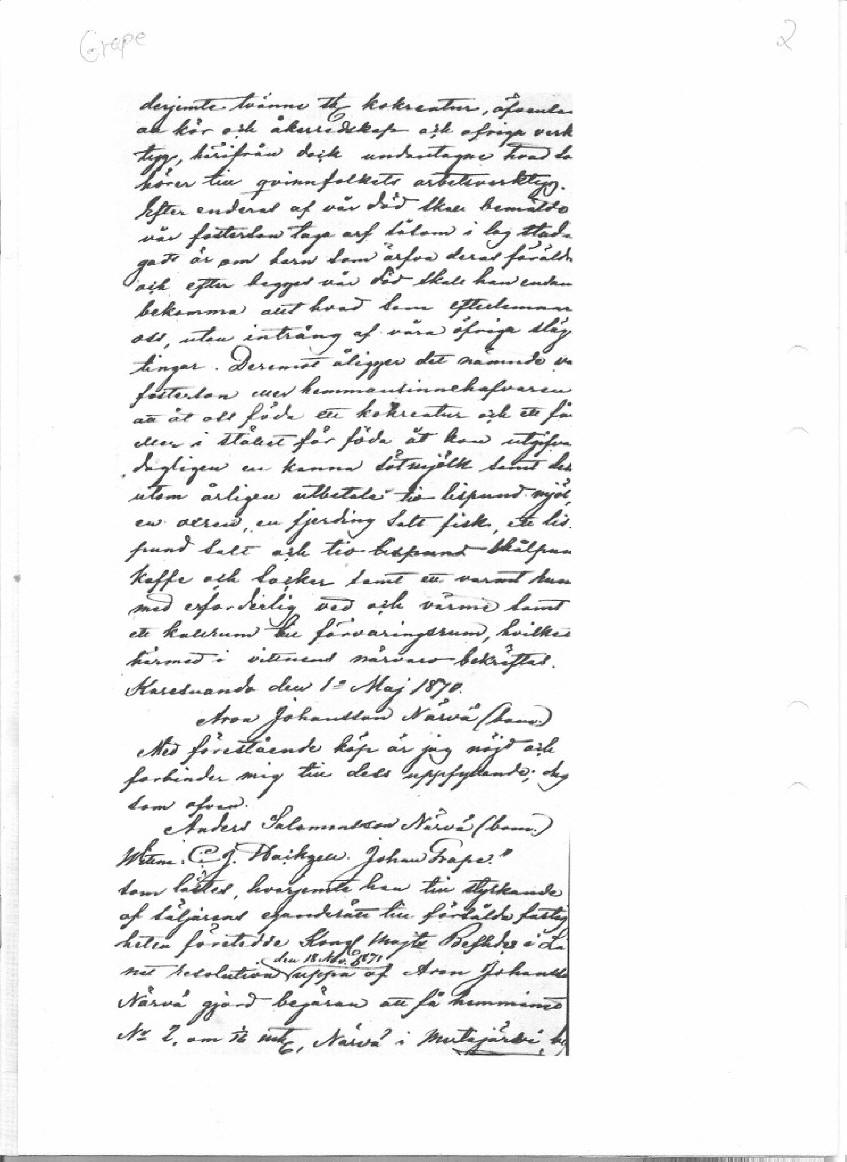 Grape
2
derjemte tvänne st kokreatur, äfvenle
en kör och åkerredskap och öfriga verk
tyg, härifrån dock undantagne hvad so
hörer till qvinnfolkets arbetsverktyg.
Efter enderas af vår död skall bemälde
vår fosterson taga arf såsom i lag stad
gadt är om barn som ärfva deras föräld
och efter begges vår död skall han endan
bekomma allt hvad som efterlemnas
oss, utan intrång af våra öfriga släg
tingar. Deremot åligger det nämnde vå
fosterson eller hemmansinnehafvaren
att åt oss föda ett kokreatur och ett får
eller i stället för föda åt kon utgifva
dagligen en kanna sötmjölk samt der
utom årligen utbetala tio lispund mjöl,
en en fjerding salt fisk, ett lis
pund salt och tio lispund skålpun
kaffe och socker samt ett varmt rum
med erforderlig ved och värme samt
ett kallrum till förvaringsrum, hvilket
härmed i vittnens närvaro bekräftas.
Karesuando den 1e Maj 1870.
Aron Johansson Närvä (bom.)
Med förestående köp är jag nöjd och
forbinder mig till dess uppfyllande; dag
som ofvan.
Anders Salomonsson Närvä (bom.)
C. J. Johan Grape."
som lästes, hvarjemte han till styrkande
af säljarens eganderätt till försålda fastig
heten företedde Kongl Majts Befhdes i La
net resolution uppå af Aron Johansso
den 18 Nov. 1871
Närvä gjord begäran att få hemmanet
No 2, om 1/16 mtl, Närvä i Mertajärvi, by